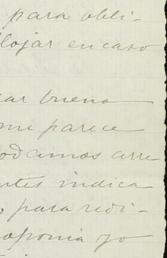 para obli-
lojar en caso
ar bueno
me parece
odamos arre
ntes indica
para redi-
aponia yo